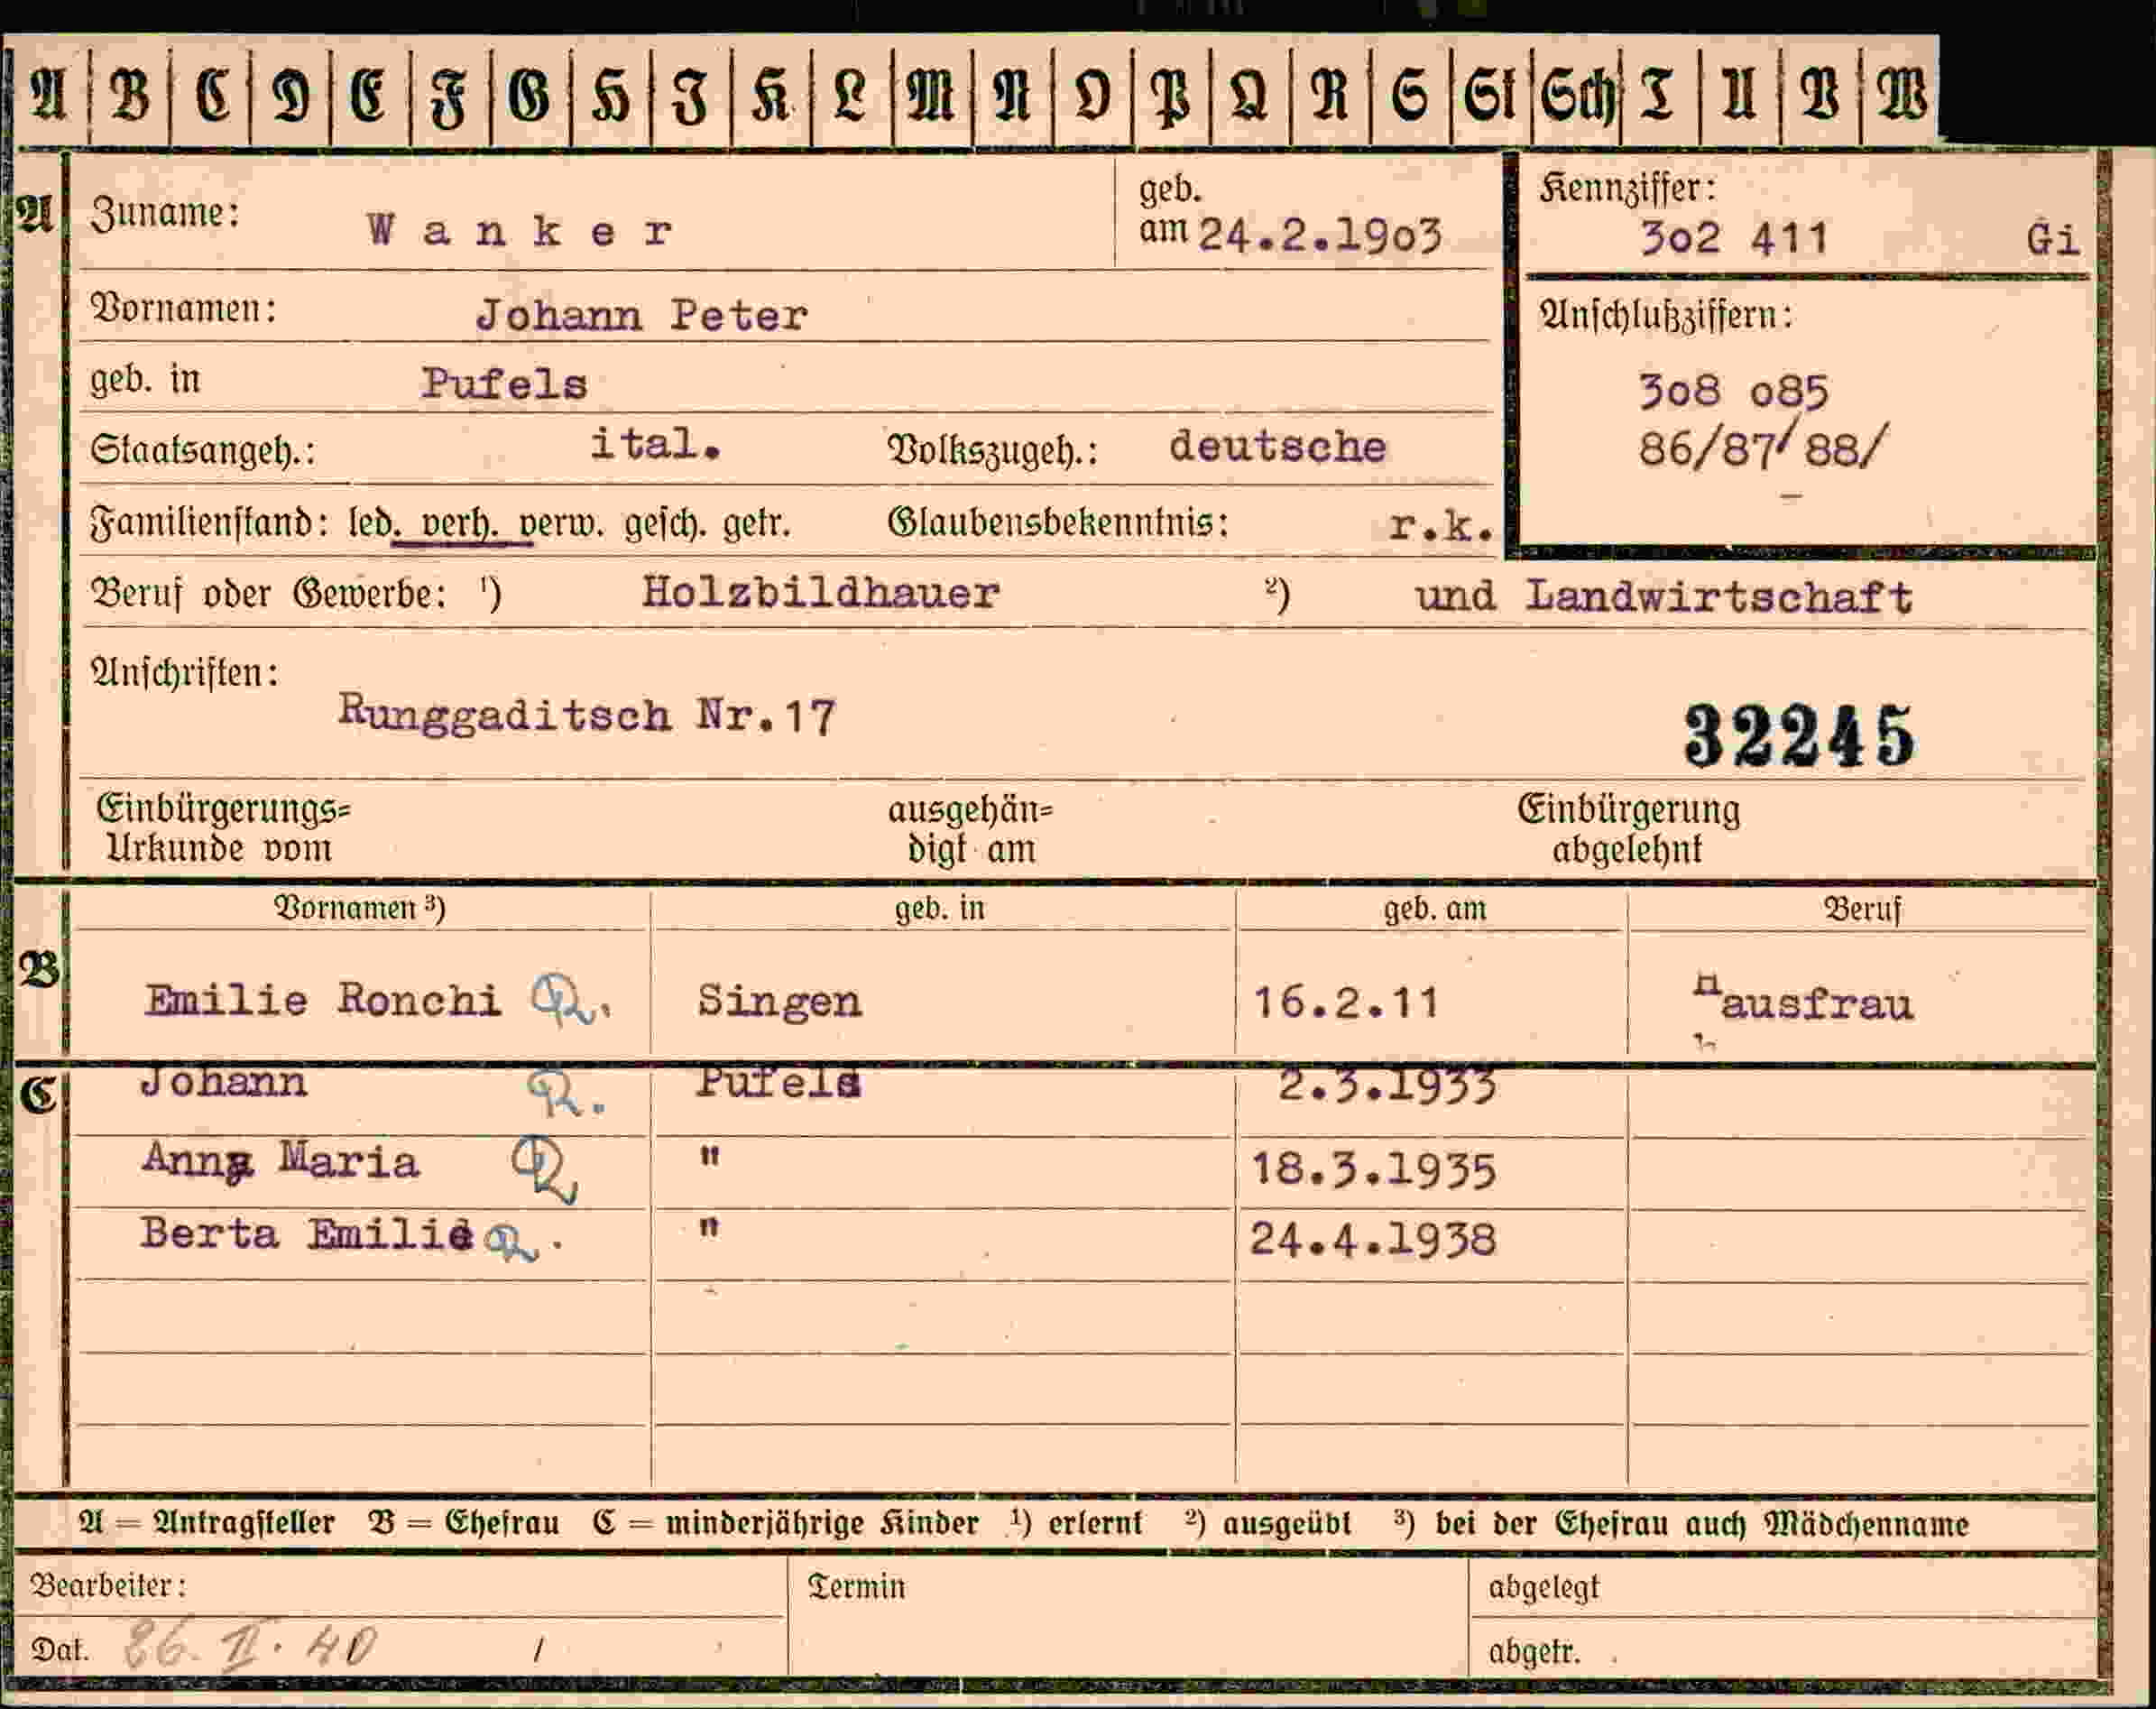 A B C D E F G H I K L M N O P Q R S St Sch T U V W
A Zuname: Wanker geb. am 24.2.19o3 Kennziffer: 3o2 411 Gi
Vornamen: Johann Peter Anschlußziffern:
geb. in Pufels 3o8 o85
Staatsangeh.: ital. Volkszugeh.: deutsche 86/87/88/
Familienstand: led. verh. verw. gesch. getr. Glaubensbekenntnis: r.k.
Beruf oder Gewerbe: ¹) Holzbildhauer ²) und Landwirtschaft
Anschriften:
Runggaditsch Nr.17 32245
Einbürgerungs= ausgehän= Einbürgerung
Urkunde vom digt am abgelehnt
Vornamen ³) geb. in geb. am Beruf
B Emilie Ronchi Singen 16.2.11 Hausfrau
C Johann Pufels 2.3.1933
Anna Maria " 18.3.1935
Berta Emilie " 24.4.1938
A = Antragsteller B = Ehefrau C = minderjährige Kinder ¹) erlernt ²) ausgeübt ³) bei der Ehefrau auch Mädchenname
Bearbeiter: Termin abgelegt
Dat. 26. II. 40 / abgetr.